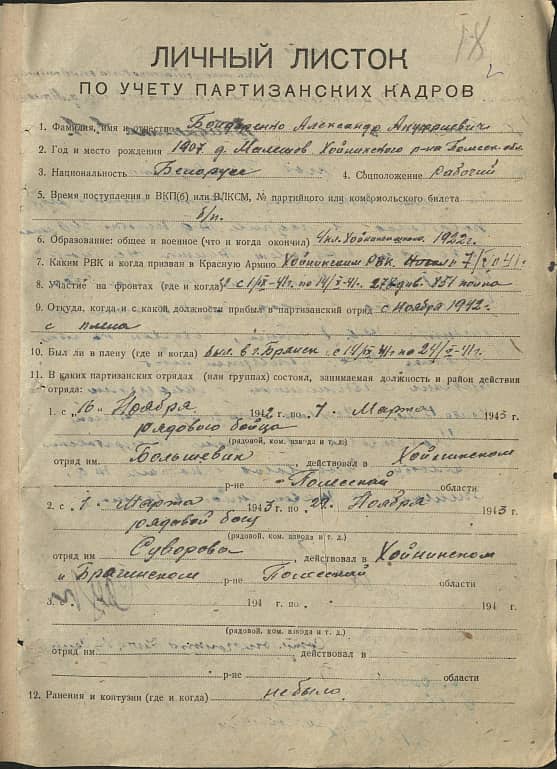 18
ЛИЧНЫЙ ЛИСТОК
ПО УЧЕТУ ПАРТИЗАНСКИХ КАДРОВ
1. Фамилия, имя и отчество Бондаренко Александр Ануфриевич
2. Год и место рождения 1907 д. Малешов Хойникского р-на Полесск. обл.
3. Национальность Беларусс 4. Соцположение Рабочий
5. Время поступления в ВКП(б) или ВЛКСМ, № партийного или комсомольского билета
б/п.
6. Образование: общее и военное (что и когда окончил) 4 кл. 1922 г.
7. Каким РВК и когда призван в Красную Армию Хойникским РВК
8. Участие на фронтах (где и когда) с 1/IX-41г. по 14/X-41г. див. полка
9. Откуда, когда и с какой должности прибыл в партизанский отряд с Ноября 1942
с плена
10. Был ли в плену (где и когда) был в г. Брянск с по 24/X-41г.
11. В каких партизанских отрядах (или группах) состоял, занимаемая должность и район действия
отряда:
1. с 16 Ноября 1942 г. по 7 Марта 1943 г.
рядового бойца
(рядовой, ком. взвода и т.д.)
отряд им. Большевик, действовал в Хойникском
р-не Полесской области
2. с 7 Марта 1943 г. по 29 Ноября 1943 г.
рядовой боец
(рядовой, ком. взвода и т. д.)
отряд им Суворова, действовал в Хойникском
и Брагинском р-не Полесской области
3. с 194 г. по 194 г.
(рядовой, ком. взвода и т. д.)
отряд им. действовал в
р-не области
12. Ранения и контузии (где и когда) не было.